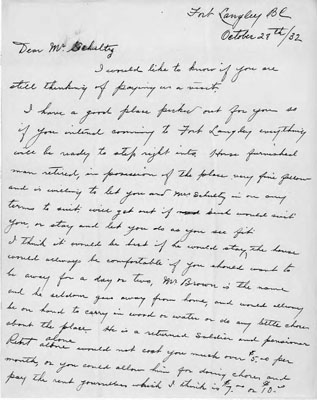 Fort Langley BC
October 28th/32
Dear Mr Schultz
I would like to know if you are
still thinking of paying us a visit.
I have a good place picked out for you so
if you intend coming to Fort Langley everything
will be ready to step right into, House furnished
man retired, in possession of the place very fine fellow
and is willing to let you and Mrs Schultz in on any
terms to suit, will get out if such would suit
you, or stay and let you do as you see fit
I think it would be best if he would stay, the house
would always be comfortable if you should want to
be away for a day or two, Mr Brown is the name
and he seldom goes away from home, and would always
be on hand to carry in wood or water or do any little chores
about the place. He is a returned Soldier and pensioner
Rent alone would not cost you much over $5.00 per
month, or you could allow him for doing chores and
pay the rent yourselves which I think is $7.00 or $10.00